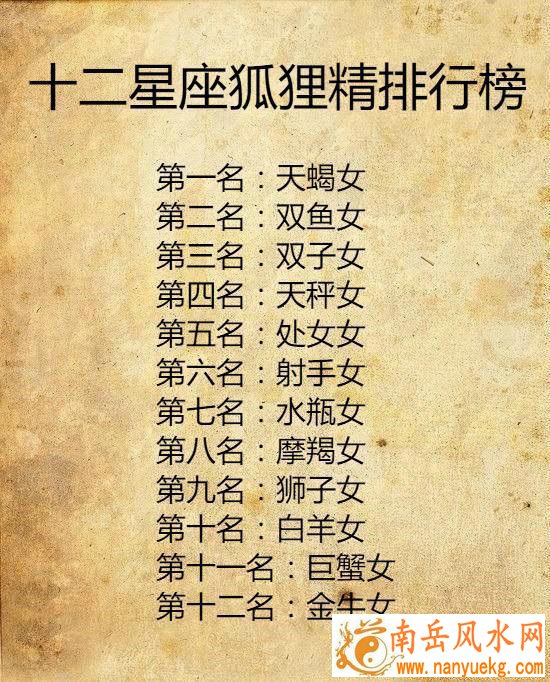 十二星座狐狸精排行榜
第一名：天蝎女
第二名：双鱼女
第三名：双子女
第四名：天秤女
第五名：处女女
第六名：射手女
第七名：水瓶女
第八名：摩羯女
第九名：狮子女
第十名：白羊女
第十一名：巨蟹女
第十二名：金牛女
南岳风水网
www.nanyuekg.com